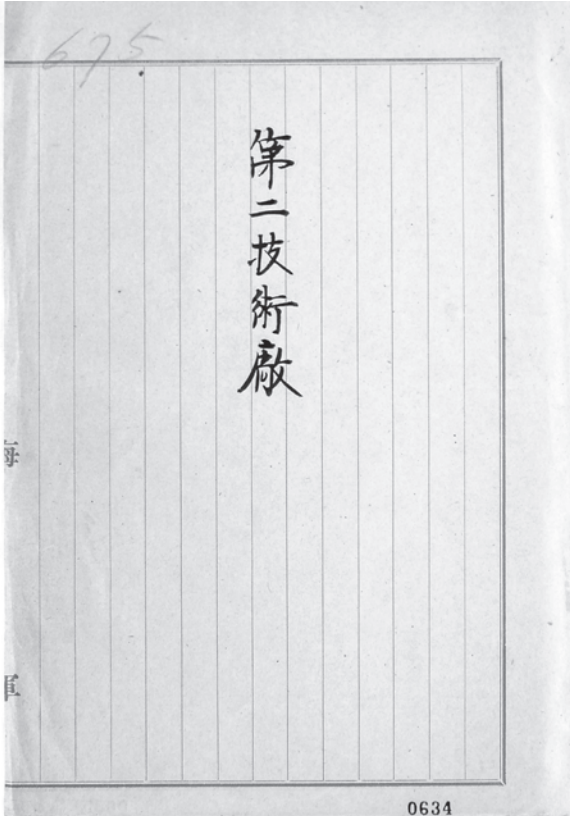 675
第二技術廠
海軍
0634